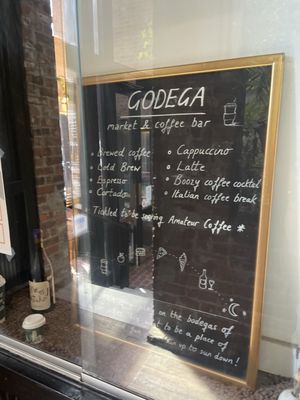 GODEGA
market & coffee bar
• Brewed coffee
• Cold Brew
• Espresso
• Cortado
• Cappuccino
• Latte
• Boozy coffee cocktail
• Italian coffee break
Tickled to be serving Amateur Coffee *
on the bodegas of
to be a place of
up to sun down!